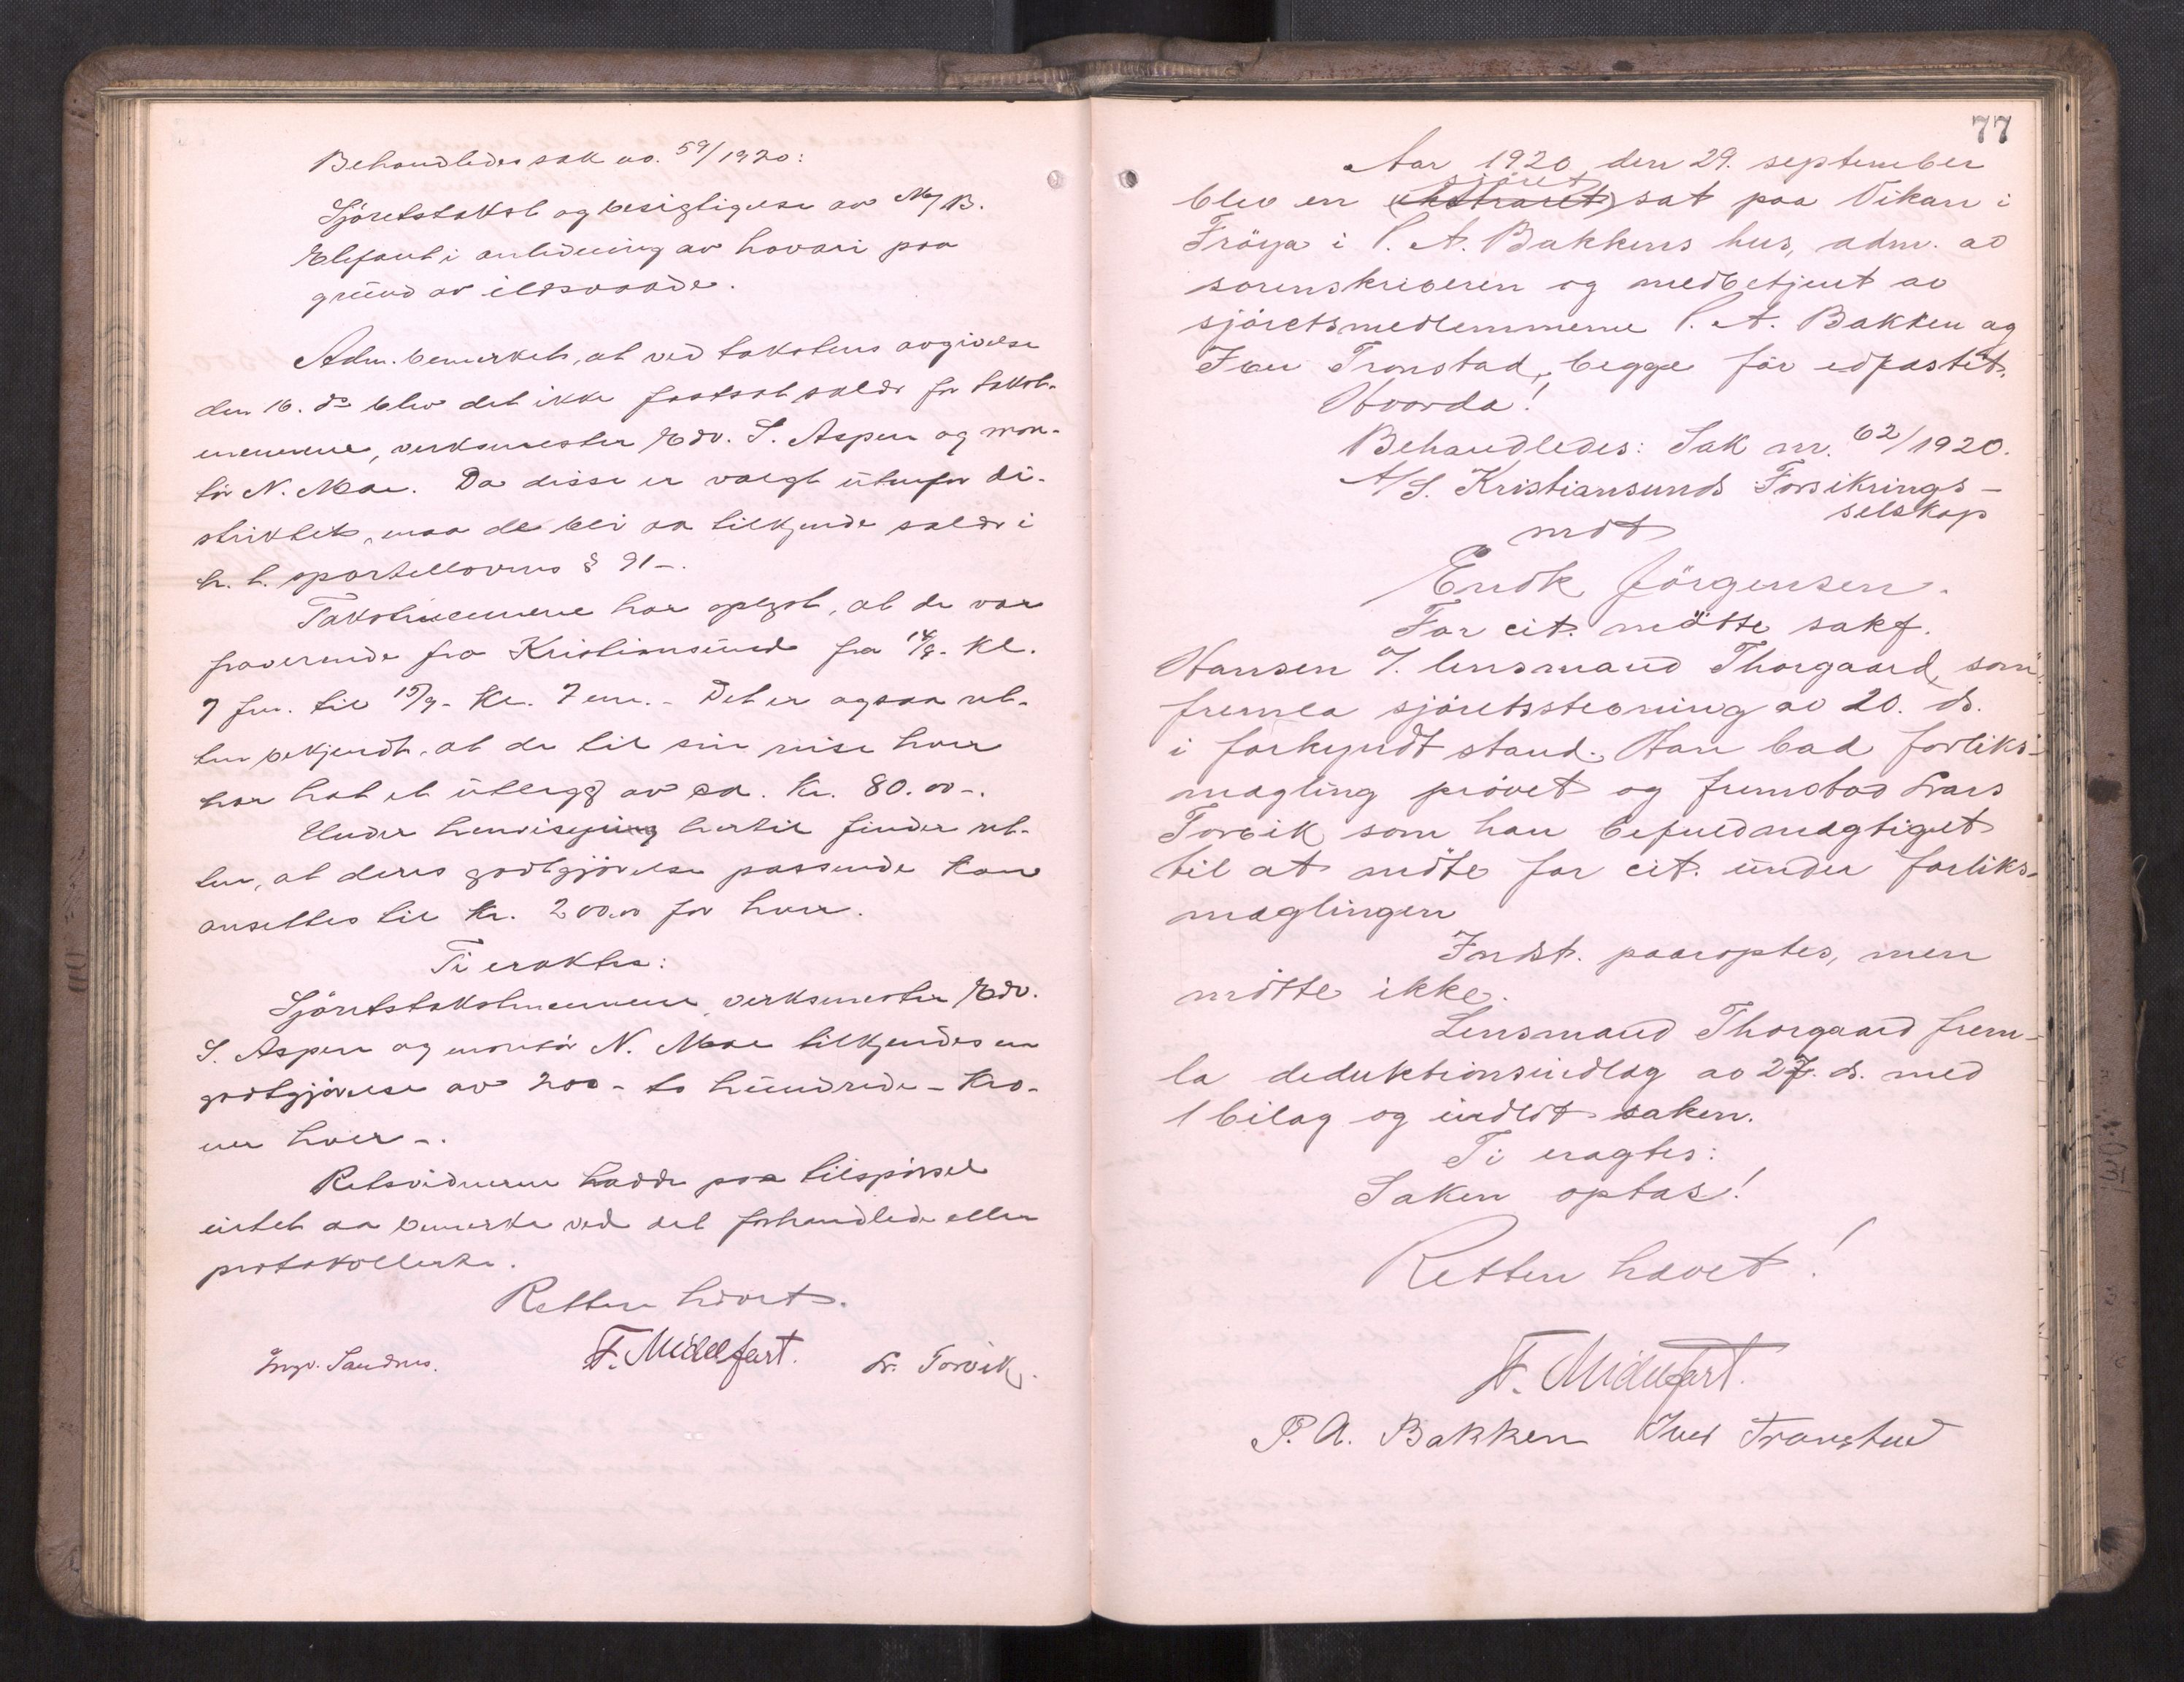 Behandledes sak no. 59/1920:
Sjöretstakst og besigtigelse av M/B.
Elefant i anledning av havari paa
grund av ildsvaade.
Adm. bemerket, at ved takstens avgivelse
den 16. ds blev det ikke fastsat salær for takst-
mennene, verksmester Edv. S. Aspen og mon-
tör N. Moe. Da disse er valgt utenfor di-
striktet, maa de bli aa tilkjende salær i
h. t. sportellovens § 91-.
Takstmennene har oplyst, at de var
fraverende fra Kristiansund fra 14/9. kl.
7 fm. til 15/9. kl. 7 em.. Det er ogsaa ret-
ten bekjendt, at de til sin reise hver
har hat et utlegg av ca. kr. 80.00-.
Under henvisning hertil finder ret-
ten, at deres godtgjörelse passende kan
ansettes til kr. 200.00 for hver.
Ti eraktes:
Sjöretstakstmennene, verksmester Edv.
S. Aspen og montör N. Moe tilkjendes en
godtgjörelse av 200 - to hundrede - kro-
ner hver -.
Retsvidnerne hadde paa tilspörsel
intet aa bemerke ved det forhandlede eller
protokollerte.
Retten hævet.
Ingv. Sandnes. F. Midelfart. Lr. Torvik.
77
Aar 1920, den 29. september
sjöret
blev en (ekstraret) sat paa Vikan i
Fröya i P. A. Bakkens hus, adm. av
sorenskriveren og medbetjent av
sjöretsmedlemmerne P. A. Bakken og
Iver Tronstad, begge för edfæstet.
Hvorda!
Behandledes: Sak nr. 62/1920.
A/S. Kristiansunds Forsikrings-
selskap
mot
Endk Jörgensen.
For cit. mötte sakf.
Hansen v. lensmand Thorgaard, som
fremla sjöretsstevning av 20. ds.
i forkyndt stand. Han bad forliks-
mægling prövet og fremstod Lars
Torvik som han befuldmægtiget
til at möte for cit. under forliks-
mæglingen
Indst. paaroptes, men
mötte ikke.
Lensmand Thorgaard frem-
la deduktionsindlæg av 27. ds. med
1 bilag og indlot saken.
Ti eragtes:
Saken optas!
Retten hævet!
F. Midelfart.
P. A. Bakken Iver Tronstad